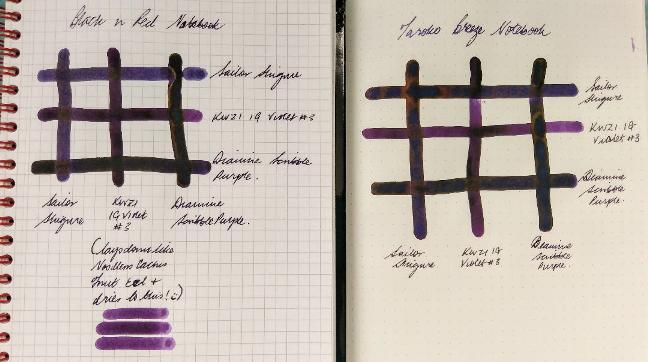 Black n Red Notebook
Sailor Shigure
KWZI IG Violet #3
Diamine Scribble
Purple.
Sailor
Shigure
KWZI
IG Violet
#3
Diamine
Scribble Purple.
like
Noodlers Cactus
Fruit Eel +
dries to this! :)
Taroko Breeze Notebook
Sailor
Shigure
KWZI IG
Violet #3
Diamine
Scribble
Purple.
Sailor
Shigure
KWZI IG
Violet #3
Diamine
Scribble
Purple.